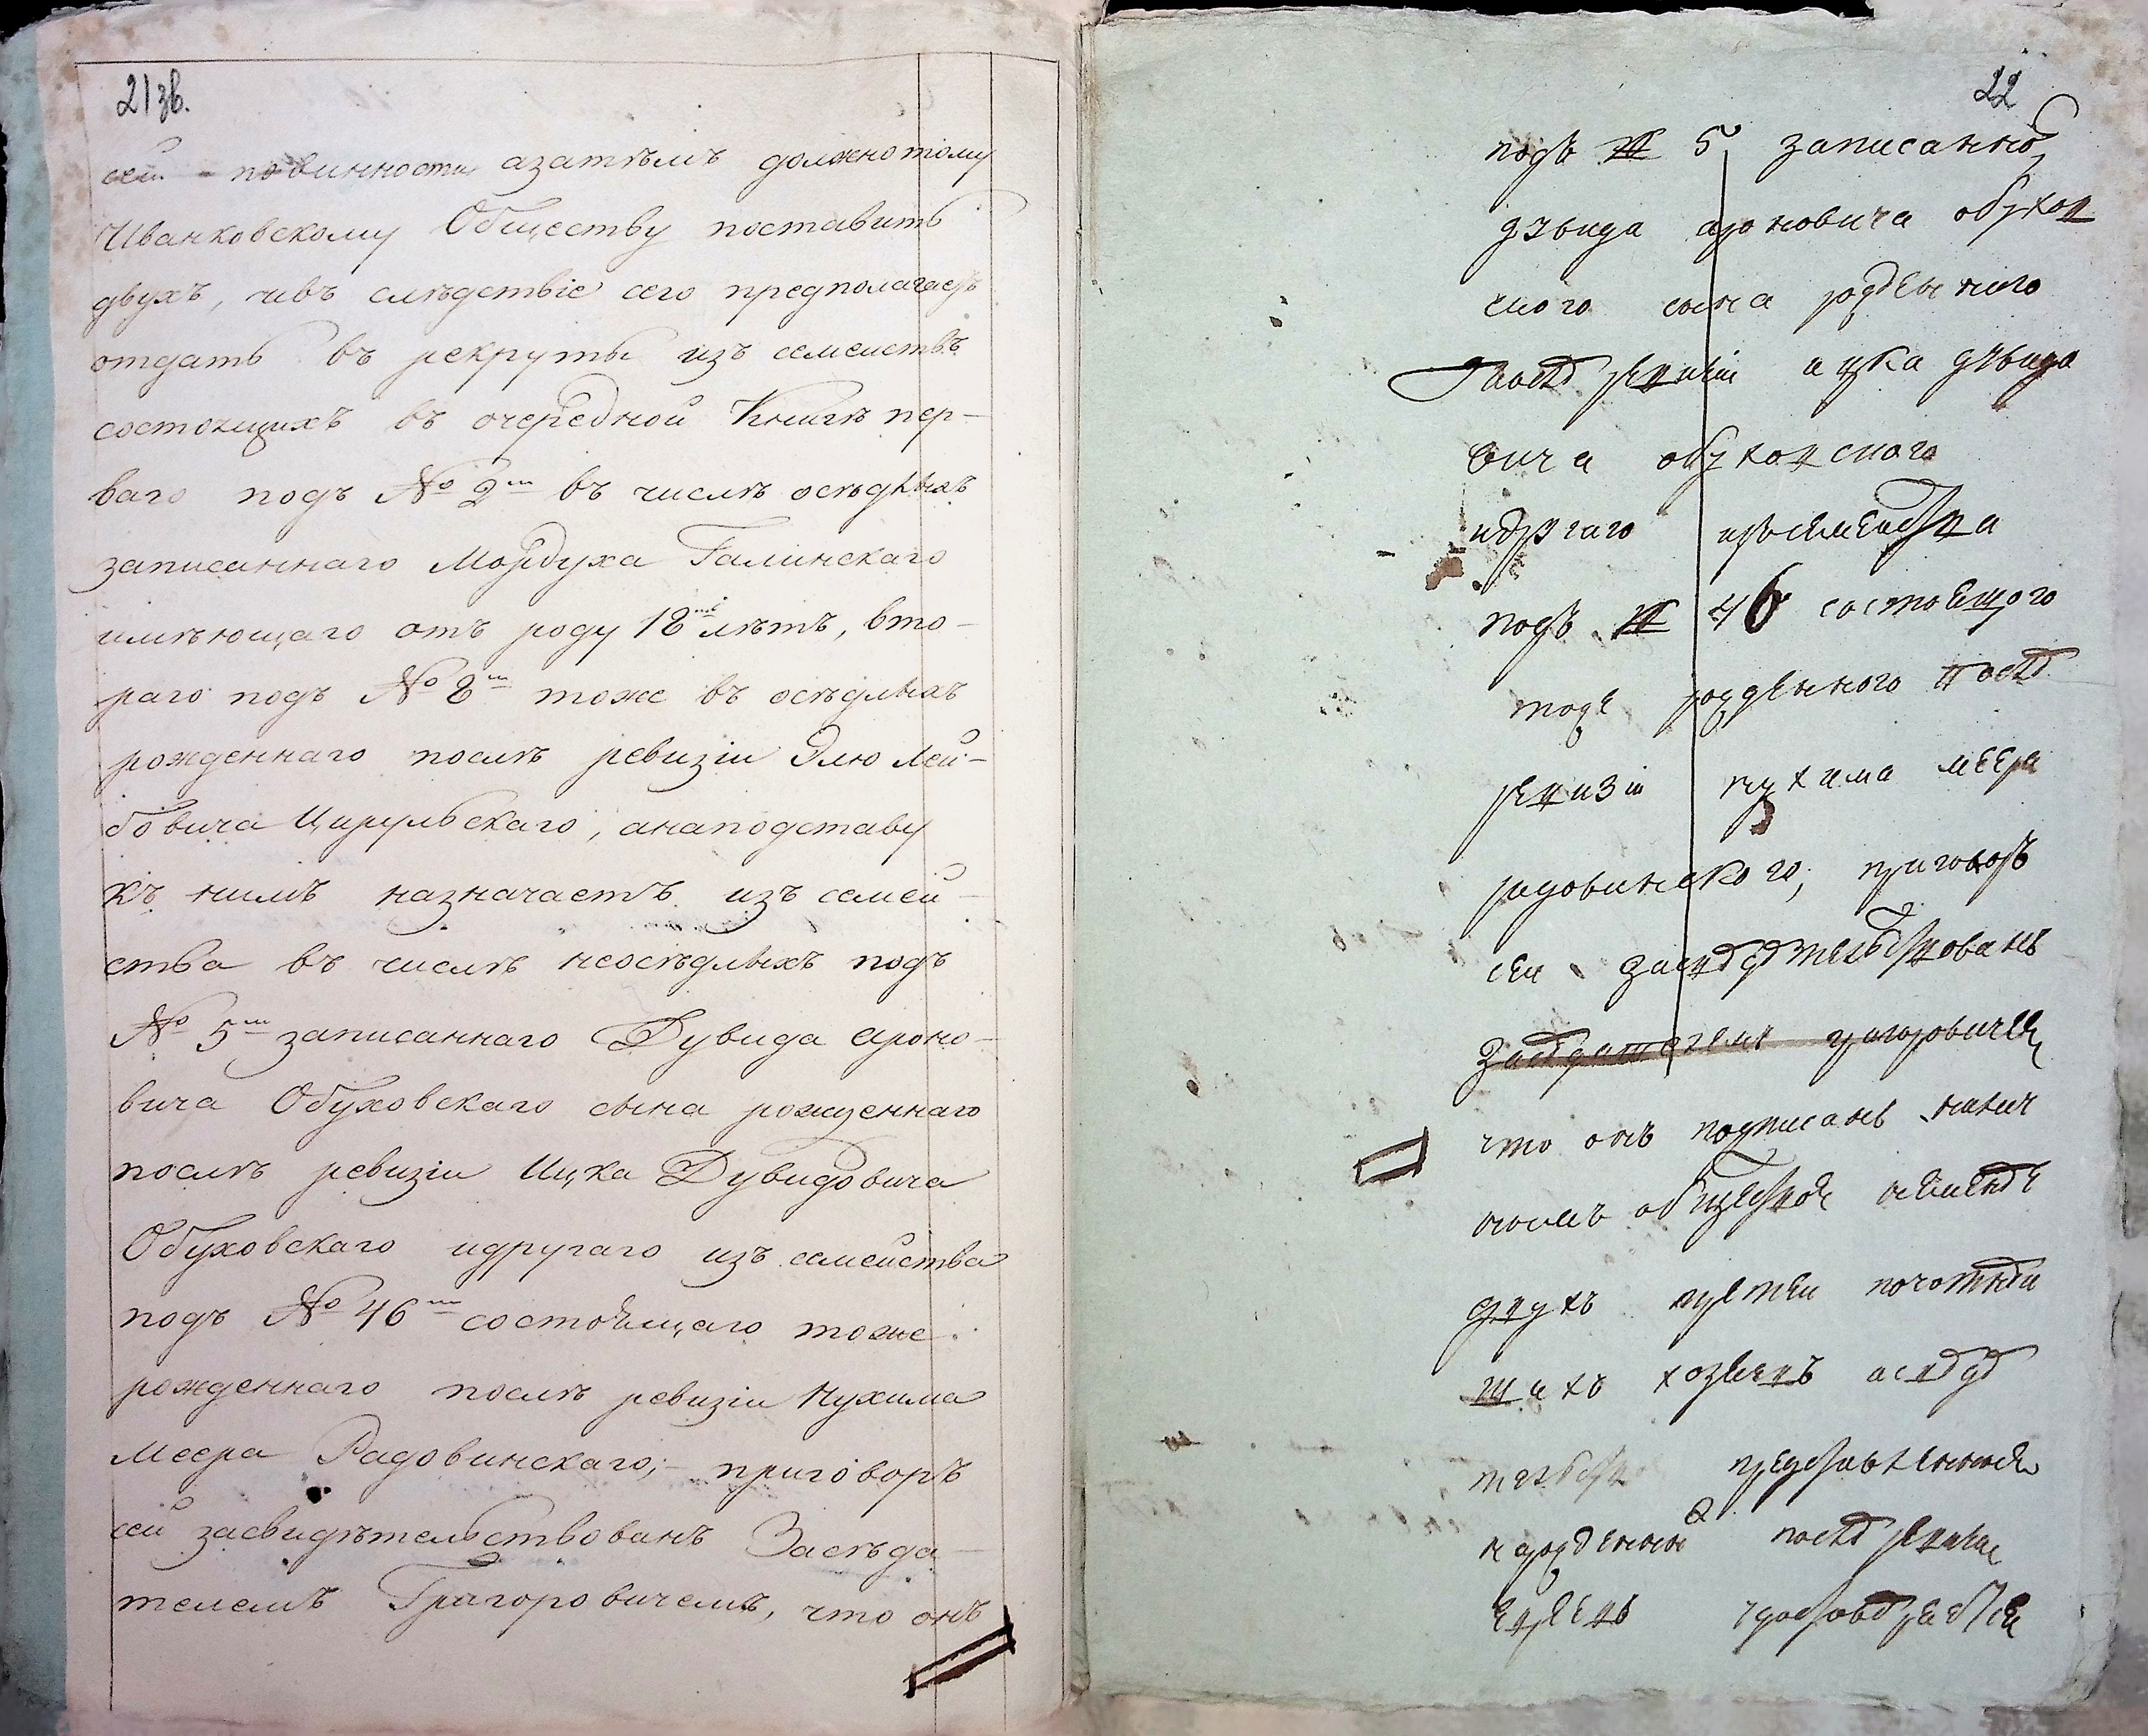 21 зв.
сей повинности, азатѣмъ должно тому
Иванковскому Обществу поставить
двухъ, ивъ слѣдствіе сего предполагаетъ
отдать въ рекруты изъ семействъ
состоящихъ въ очередной Книгѣ пер-
ваго подъ № 2м въ числѣ осѣдлыхъ
записаннаго Мордуха Галинскаго
имѣющаго отъ роду 18 лѣтъ, вто-
раго подъ № 8м тоже въ осѣдлыхъ
рожденнаго послѣ ревизіи Элю Лей-
бовича Цирульскаго, анаподставу
къ нимъ назначаетъ изъ семей-
ства въ числѣ неосѣдлыхъ подъ
№ 5м записаннаго Дувида Ароно-
вича Обуховскаго сына рожденнаго
послѣ ревизіи Ицка Дувидовича
Обуховскаго идругаго изъ семейства
подъ № 46м состоящаго тоже
рожденнаго послѣ ревизіи Нухима
Меера Радовинскаго;- приговоръ
сей засвидѣтельствованъ Засѣда-
телемъ Григоровичемъ, что онъ
22
подъ № 5 записанно
дувида ароновича обухов
ского сына рожденного
послѣ ревизіи ицка дувидо
вича обуховского
идругаго изъсемейства
подъ № 46 состоящого
тоже рожденного послѣ
ревизіи нухима меера
радовинского, приговоръ
сей засвидѣтельствованъ
Засѣдателемъ григоровичем
что онъ подписанъ
двухъ третей
хозяевъ
представленной
послѣ ревизіи